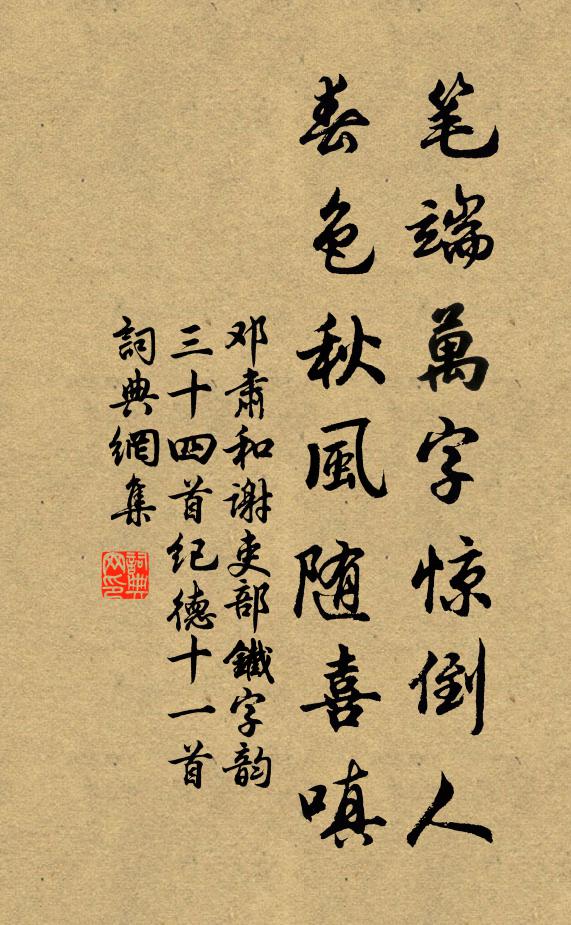 笔端萬字惊倒人
春色秋風随喜嗔
邓肃和谢吏部鐵字韵
三十四首纪德十一首
詞典網集
詞典网印